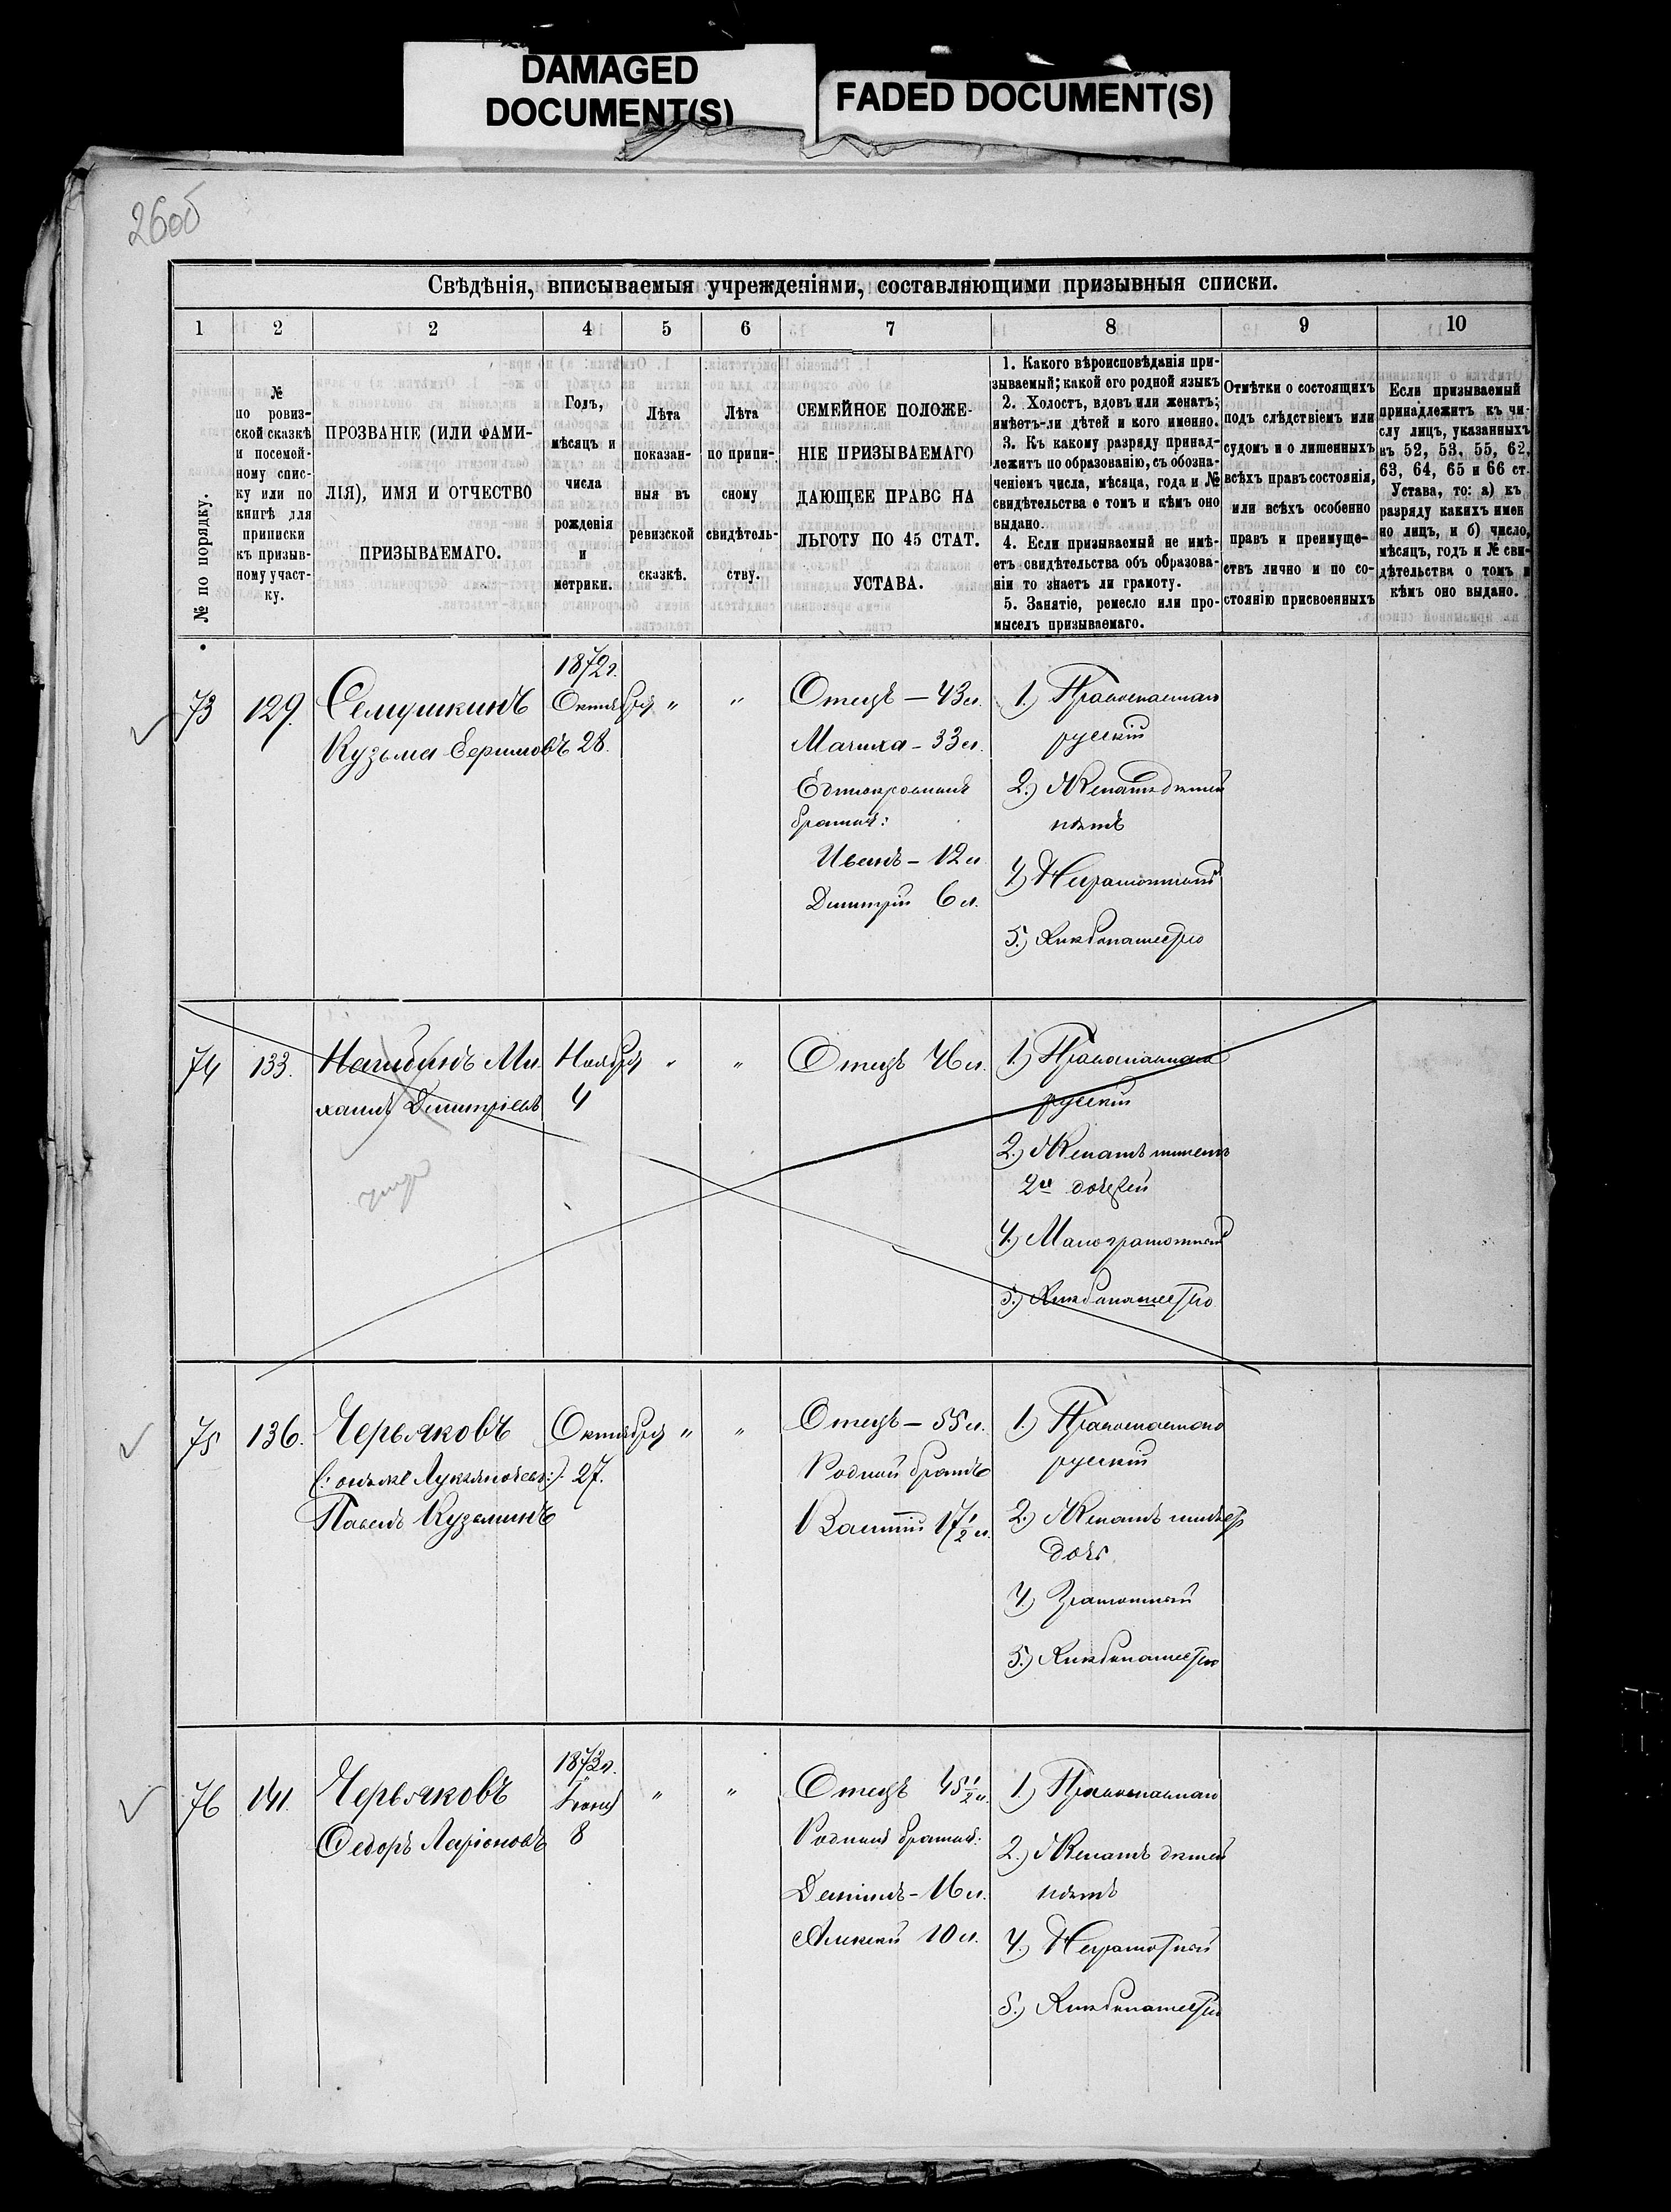 DAMAGED
DOCUMENT(S)
FADED DOCUMENT(S)
26об
Свѣдѣнія, вписываемыя учрежденіями, составляющими призывныя списки.
1 2 2 4 5 6 7 8 9 10
№ по порядку.
№
по ровиз-
ской сказкѣ
и посемей-
ному спис-
ку или по
книгѣ для
приписки
къ призыв-
ному участ-
ку.
ПРОЗВАНІЕ (ИЛИ ФАМИ-
ЛІЯ), ИМЯ И ОТЧЕСТВО
ПРИЗЫВАЕМАГО.
Годъ,
мѣсяцъ и
числа
рожденія
и
метрики.
Лѣта
показан-
ныя въ
ревизской
сказкѣ.
Лѣта
по припи-
сному
свидѣтель-
ству.
СЕМЕЙНОЕ ПОЛОЖЕ-
НІЕ ПРИЗЫВАЕМАГО
ДАЮЩЕЕ ПРАВО НА
ЛЬГОТУ ПО 45 СТАТ.
УСТАВА.
1. Какого вѣроисповѣданія при-
зываемый; какой его родной языкъ
2. Холостъ, вдовъ или женатъ;
имѣетъ-ли дѣтей и кого именно.
3. Къ какому разряду принад-
лежитъ по образованію, съ обозна-
ченіемъ числа, мѣсяца, года и №
свидѣтельства о томъ и кѣмъ оно
выдано.
4. Если призываемый не имѣ-
етъ свидѣтельства объ образова-
ніи то знаетъ ли грамоту.
5. Занятіе, ремесло или про-
мыселъ призываемаго.
Отмѣтки о состоящихъ
подъ слѣдствіемъ или
судомъ и о лишенныхъ
всѣхъ правъ состоянія,
или всѣхъ особенно
правъ и преимуще-
ствъ лично и по со-
стоянію присвоенныхъ
Если призываемый
принадлежитъ къ чи-
слу лицъ, указанныхъ
въ 52, 53, 55, 62,
63, 64, 65 и 66 ст.
Устава, то: а) къ
разряду какихъ имен
но лицъ, и б) число,
мѣсяцъ, годъ и № сви-
дѣтельства о томъ и
кѣмъ оно выдано.
73 129. Семушкинъ
Кузьма Ефимовъ
1872г.
Октября
28.
" "
Отецъ – 43 л.
Мачиха – 33 л.
Единокровныи
братья:
Иванъ – 12 л.
Димитрій 6 л.
1.) Православнаго
русскій
2.) Женатъ дѣтей
нѣтъ
4) Неграмотный
5.) Хлѣбопашество
74 133. Нагибинъ Ми
хаилъ Дмитріевъ
Ноября
4
" "
Отецъ 46 л.
1.) Православнаго
русскій
2.) Женатъ имѣетъ
2хъ дочерей
4.) Малограмотный
5.) Хлѣбопашество
75 136. Черьяковъ
(: онъ же Лукьяновъ :)
Павелъ Кузьминъ
Октября
27.
" "
Отецъ – 55 л.
Родной братъ
Василій 17 1/2 л.
1.) Православнаго
русскій
2.) Женатъ имѣетъ
дочь
4.) Грамотный
5.) Хлѣбопашество
76 141. Черьяковъ
Федоръ Ларіоновъ
1872г.
8
" "
Отецъ 45 1/2 л.
Родныи братья:
Даніилъ – 16 л.
Алексей 10 л.
1.) Православнаго
2.) Женатъ дѣтей
нѣтъ
4.) Неграмотный
5.) Хлѣбопашество